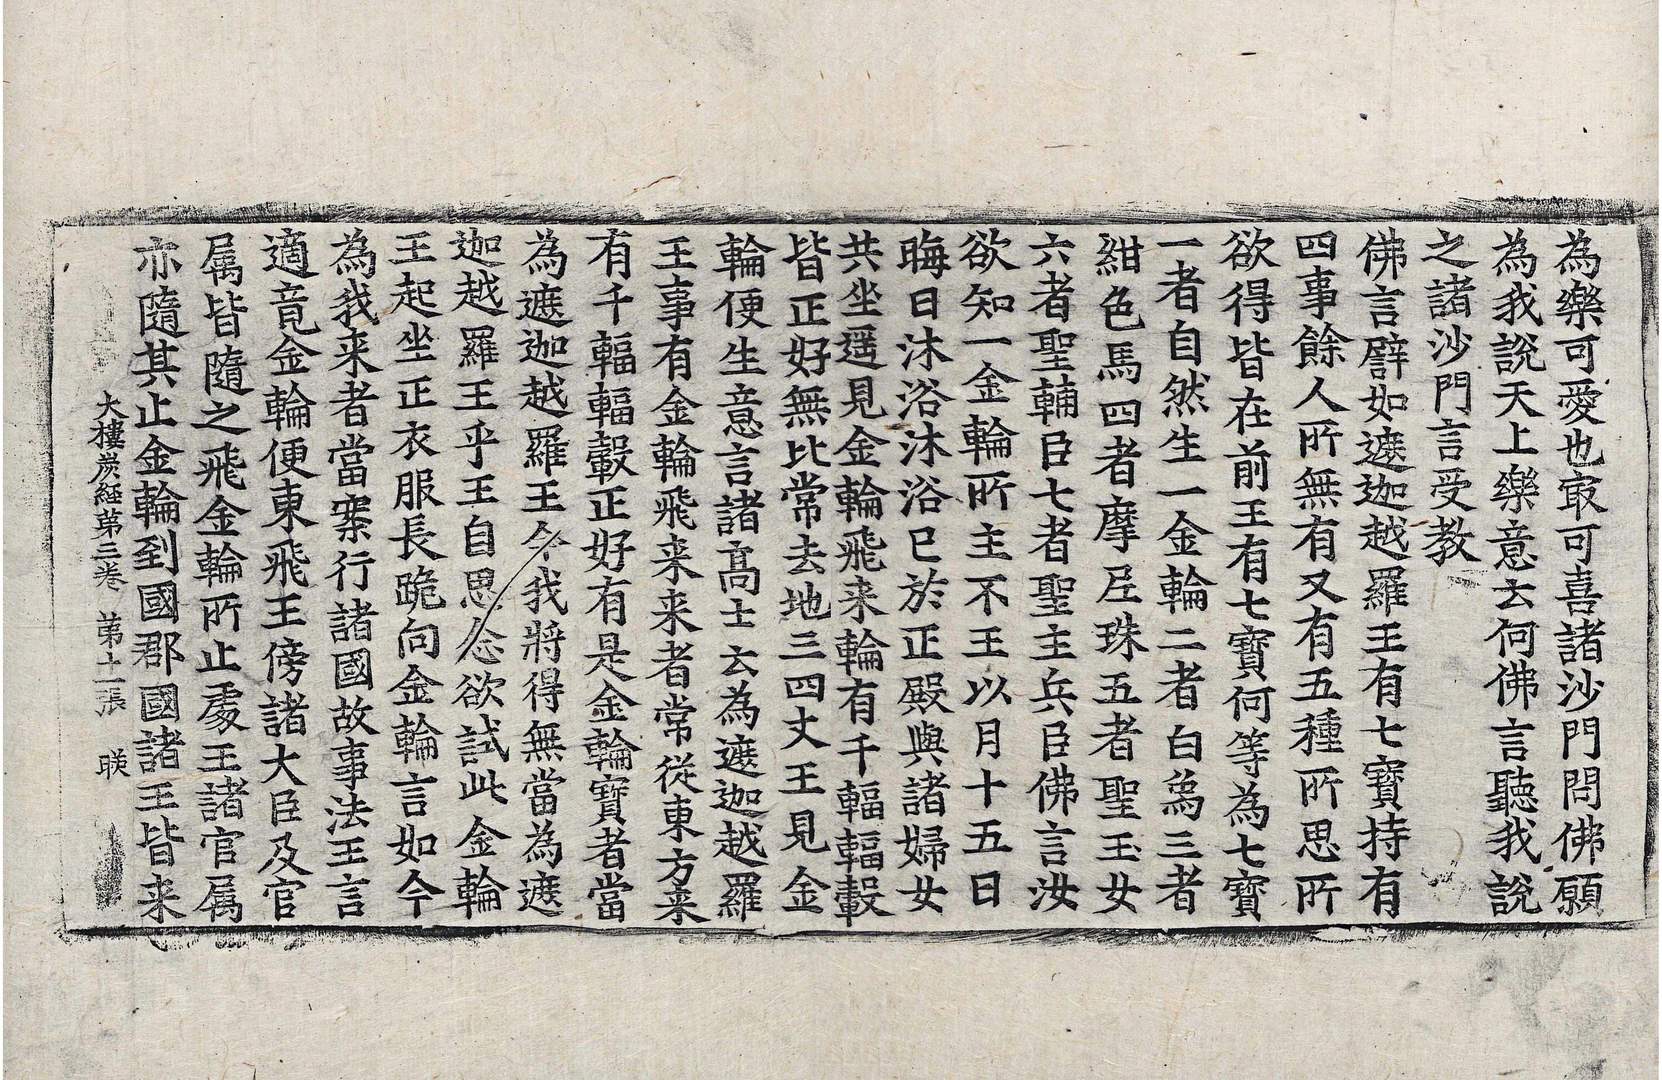 為樂可愛也㝡可喜諸沙門問佛願
為我說天上樂意云何佛言聽我說
之諸沙門言受教
佛言譬如遮迦越羅王有七寶持有
四事餘人所無有又有五種所思所
欲得皆在前王有七寶何等為七寶
一者自然生一金輪二者白爲三者
紺色馬四者摩尼珠五者聖玉女
六者聖輔臣七者聖主兵臣佛言汝
欲知一金輪所主不王以月十五日
晦日沐浴沐浴已於正殿與諸婦女
共坐遥見金輪飛来輪有千輻輻轂
皆正好無比常去地三四丈王見金
輪便生意言諸髙士云為遮迦越羅
王事有金輪飛来来者常從東方来
有千輻輻轂正好有是金輪寶者當
為遮迦越羅王今我將得無當為遮
迦越羅王乎王自思念欲試此金輪
王起坐正衣服長跪向金輪言如今
為我来者當案行諸國故事法王言
適竟金輪便東飛王傍諸大臣及官
属皆隨之飛金輪所止處王諸官属
亦隨其止金輪到國郡國諸王皆来
大樓炭経第三卷 第十一張 昳